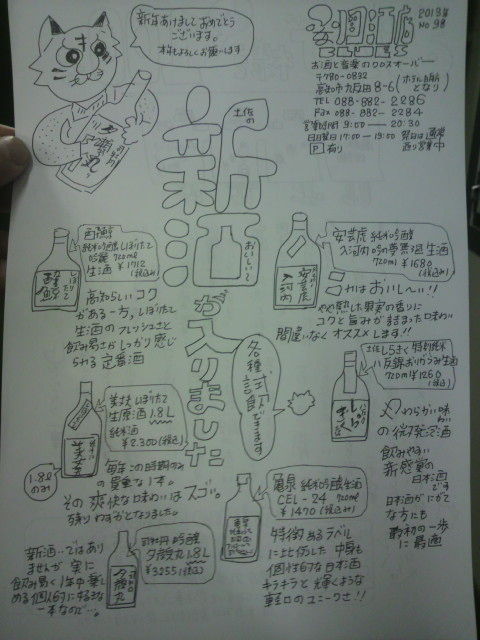 新年あけましておめでとう
ございます。
本年もよろしくお願いします
2013年
No.98
お酒と音楽のクロスオーバー
〒780-0832
高知市九反田8-6
となり
TEL 088-882-2286
Fax 088-882-2284
営業時間 9:00 ― 20:30
日曜日 17:00 ― 19:00
P 有り
土佐の
新酒
おいしいで
が入りました
各種、試飲できます
酔鯨
純米吟醸しぼりたて
吟麗 720ml
生酒 ¥1712
(税込み)
しぼりたて
酔鯨
高知らしいコク
がある一方、しぼりたて
生酒のフレッシュさと
飲み易さがしっかり感じ
られる定番酒
安芸虎 純米吟醸
入河内 吟の夢 生酒
720ml ¥1680
(税込み)
安芸虎
入河内
おいし〜い!!
やや熟した果実の香りに
コクと旨みが詰まった味わい
間違いなくオススメします!!
美丈夫 しぼりたて
生原酒 1.8L
純米酒
¥2,300(税込)
美丈夫
1.8L
のみ
毎年この時期のみ
の貴重な1本。
その爽快な味わいはスゴ。
残りわずかとなりました。
土佐しらぎく 特別純米
八反錦おりがらみ生酒
720ml ¥1260
(税込)
しらぎく
やわらかい味わい
の微発泡酒
飲みやすい
新感覚の
日本酒です
日本酒がにがて
な方にも
最初の一歩
に最適
亀泉 純米吟醸生酒
CEL-24 720ml
¥1470(税込み)
特徴あるラベル
に比例した中身も
個性的な日本酒
キラキラと輝くような
軽口のユニークさ!!
司牡丹 吟醸
夕鶴丸 1.8L
¥3255(税込み)
夕鶴丸
新酒ではあり
ませんが実に
飲み易く1年中楽し
める個人的に好きな
一本なので…。